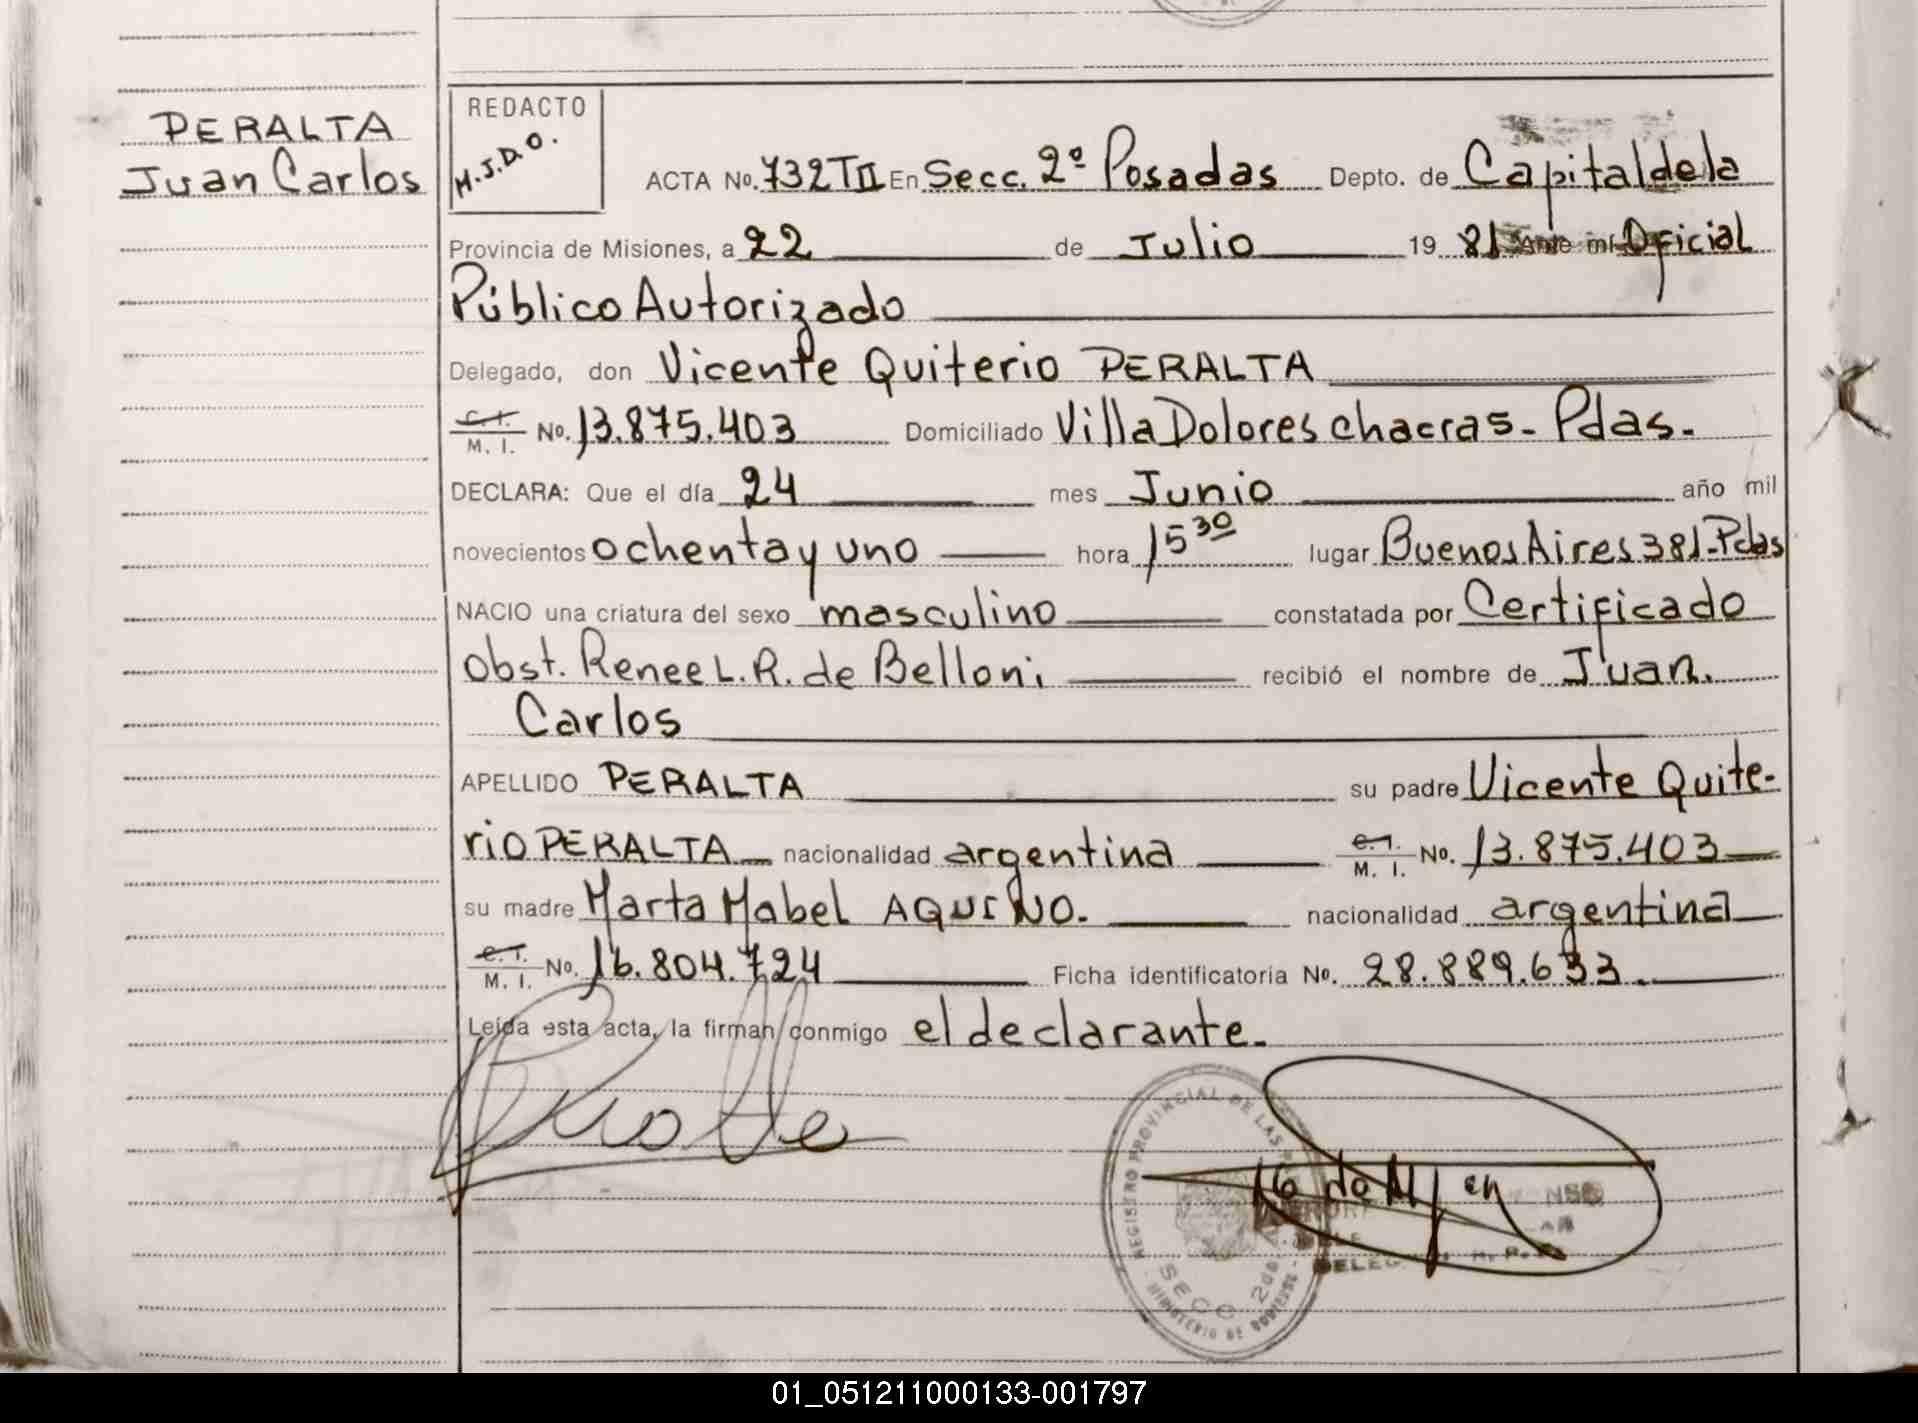 PERALTA
Juan Carlos
REDACTO
M.J.D.O.
ACTA No. 732 TII En Secc. 2º Posadas Depto. de Capital de la
Provincia de Misiones, a 22 de Julio 19 81 Ante mí Oficial
Público Autorizado
Delegado, don Vicente Quiterio PERALTA
C. I. / M. I. No. 13.875.403 Domiciliado Villa Dolores chacras - Pdas.
DECLARA: Que el día 24 mes Junio año mil
novecientos ochenta y uno hora 15 30 lugar Buenos Aires 381 - Pdas
NACIO una criatura del sexo masculino constatada por Certificado
Obst. Renee L. R. de Belloni recibió el nombre de Juan.
Carlos
APELLIDO PERALTA su padre Vicente Quite-
rio PERALTA nacionalidad argentina C. I. / M. I. No. 13.875.403
su madre Marta Mabel AQUINO. nacionalidad argentina
C. I. / M. I. No. 16.804.724 Ficha identificatoria No. 28.889.633.
Leída esta acta, la firman conmigo el declarante.
REGISTRO PROVINCIAL DE LAS
SECC 2da
MINISTERIO DE GOBIERNO
01_051211000133-001797